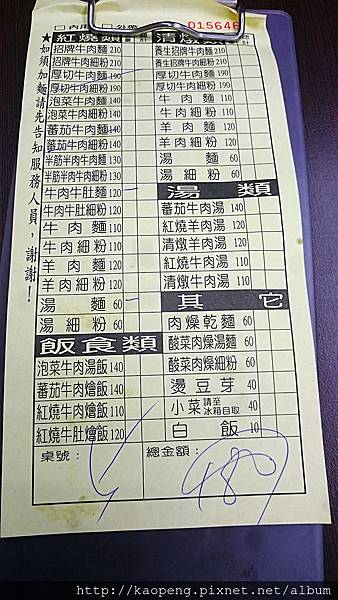 內用 外帶 015646
紅燒類
招牌牛肉麵 210
招牌牛肉細粉 210
厚切牛肉麵 190
厚切牛肉細粉 190
泡菜牛肉麵 140
泡菜牛肉細粉 140
蕃茄牛肉麵 140
蕃茄牛肉細粉 140
半筋半肉牛肉麵 130
半筋半肉牛肉細粉 130
牛肉牛肚麵 120
牛肉牛肚細粉 120
牛肉麵 110
牛肉細粉 110
羊肉麵 120
羊肉細粉 120
湯麵 60
湯細粉 60
飯食類
泡菜牛肉湯飯 140
蕃茄牛肉燴飯 140
紅燒牛肉燴飯 110
紅燒牛肚燴飯 120
桌號：
4
清燉類
養生招牌牛肉麵 210
養生招牌牛肉細粉 210
厚切牛肉麵 190
厚切牛肉細粉 190
牛肉麵 110
牛肉細粉 110
羊肉麵 120
羊肉細粉 120
湯麵 60
湯細粉 60
湯類
蕃茄牛肉湯 140
紅燒羊肉湯 120
清燉羊肉湯 120
紅燒牛肉湯 110
清燉牛肉湯 110
其它
肉燥乾麵 60
酸菜肉燥湯麵 60
酸菜肉燥細粉 60
燙豆芽 40
小菜 請至冰箱自取 40
白飯 10
總金額：
480
★如須加麵請先告知服務人員，謝謝！
http://kaopeng.pixnet.net/album